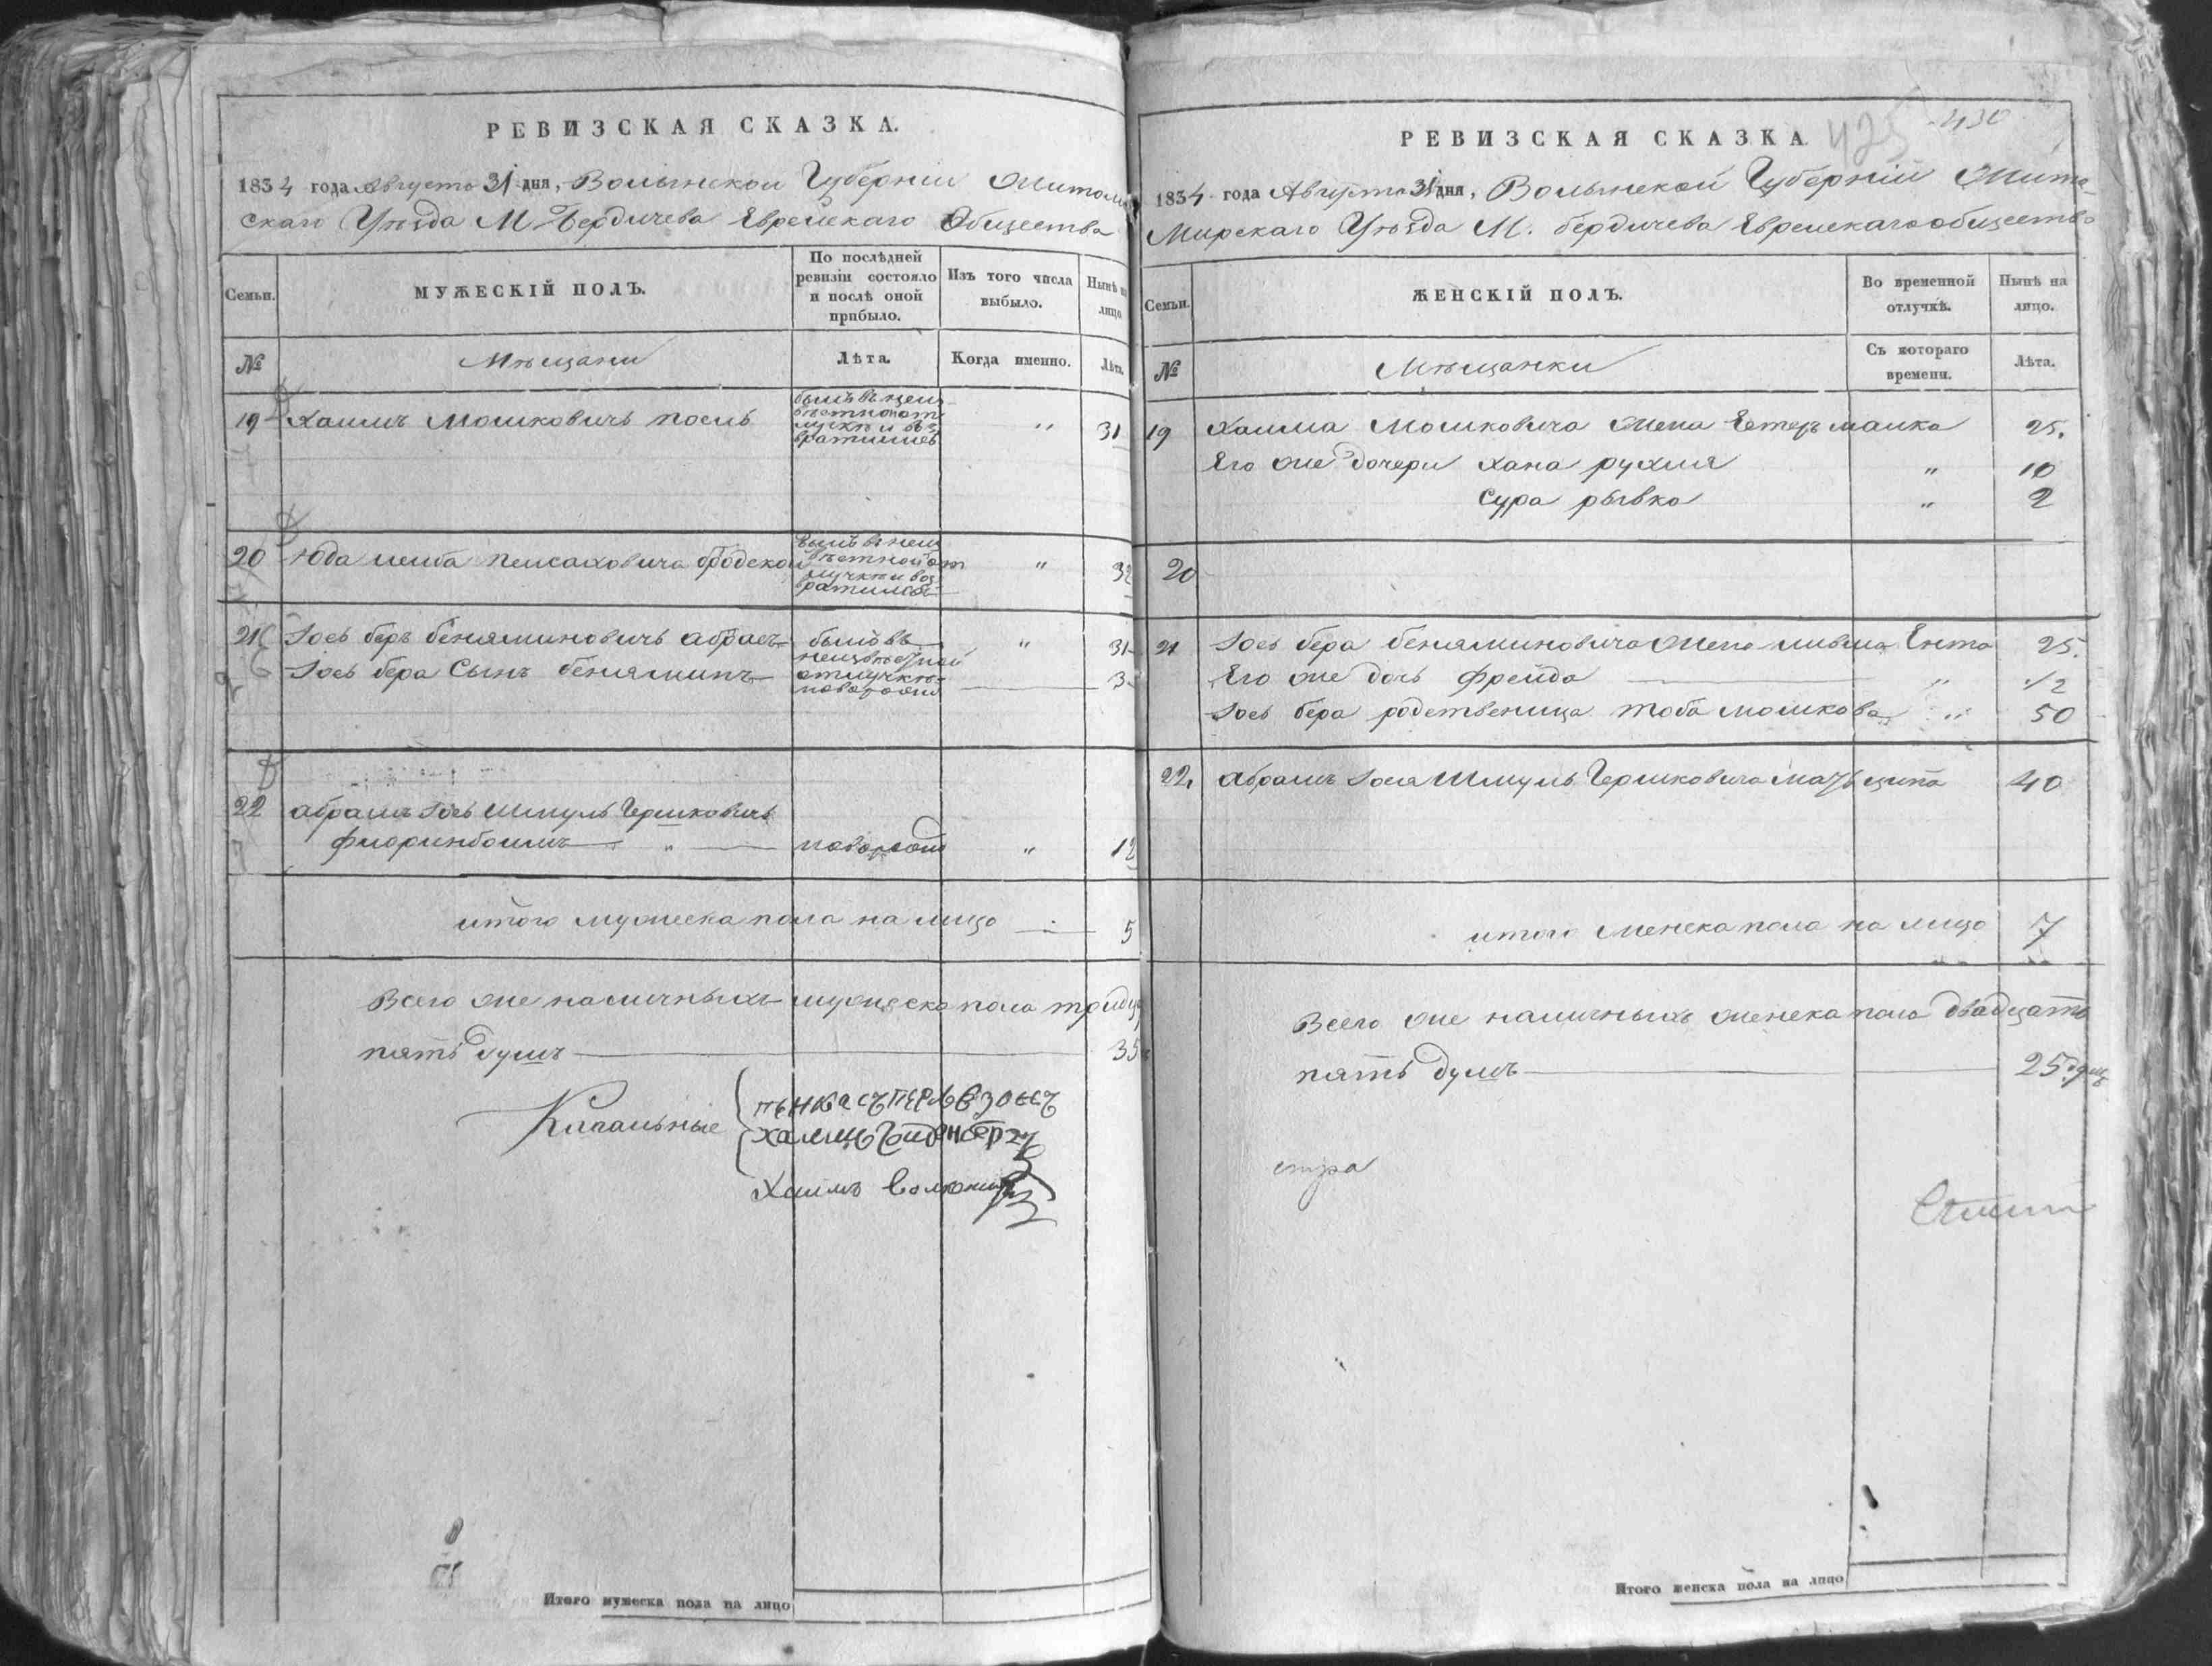 РЕВИЗСКАЯ СКАЗКА.
1834 года Августа 31 дня, Волынской Губерніи Житом
скаго Уѣзда М Бердичева Еврейскаго Общества
Семьи.
МУЖЕСКІЙ ПОЛЪ.
По послѣдней
ревизіи состояло
и послѣ оной
прибыло.
Изъ того числа
выбыло.
Нынѣ на
лицо
№
Мѣщани
Лѣта.
Когда именно.
Лѣта.
19 Хаимъ Мошковичъ
вратился
" 31
20 Юда Лейба Пейсаховича Бродской
былъ в неиз
вѣстной от
лучкѣ и воз
ратился
" 32
21 Іось беръ беняминовичъ
былъ въ
" 31
Іось бера Сынъ беняминъ
неизвѣстной
отлучкѣ
3
22 абрамъ Іось Шмуль Гершковичъ
" " 12
итого мужеска пола на лицо 5
Всего же наличныхъ мужеска пола тридц
пять душъ 35
Кагальные
Хаимъ
РЕВИЗСКАЯ СКАЗКА.
425 430
1834 года Августа 31 дня, Волынской Губерніи Жито
Мирскаго Уѣзда М. бердичева Еврейскаго общества
Семьи.
ЖЕНСКІЙ ПОЛЪ.
Во временной
отлучкѣ.
Нынѣ на
лицо.
№
Мѣщанки
Съ котораго
времени.
Лѣта.
19 Хаима Мошковича жена Естеръ малка 25.
Его же дочери хана рухля " 10
Сура рывка " 2
20
21 Іось бера беняминовича жена Ента 25.
Его же дочь Фрейда " 1/2
Іось бера родственица тоба мошкова " 50
22, абрамъ Іося Шмуль Гершковича мать ципа 40
итого женска пола на лицо 7
Всего же наличныхъ женска пола двадцать
пять душъ 25
Итого мужеска пола на лицо
Итого женска пола на лицо